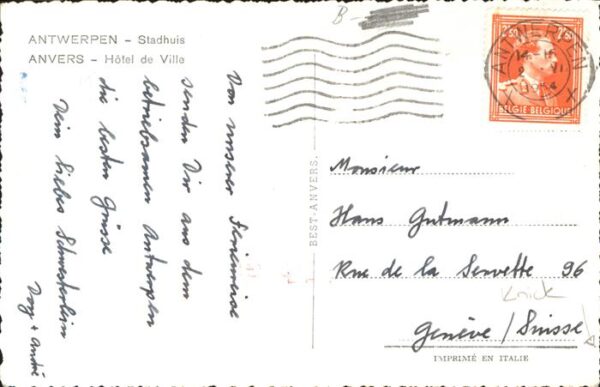 ANTWERPEN – Stadhuis
ANVERS – Hôtel de Ville
Von unserer Ferienreise
senden Dir aus dem
betriebsamen Antwerpen
die besten Grüsse
Dein liebes Schwesterlein
Dory + André
BEST-ANVERS.
B –
ANTWERPEN
2.50
BELGIE BELGIQUE
Monsieur
Hans Gutmann
Rue de la Servette 96
Knick
Genève / Suisse
IMPRIMÉ EN ITALIE